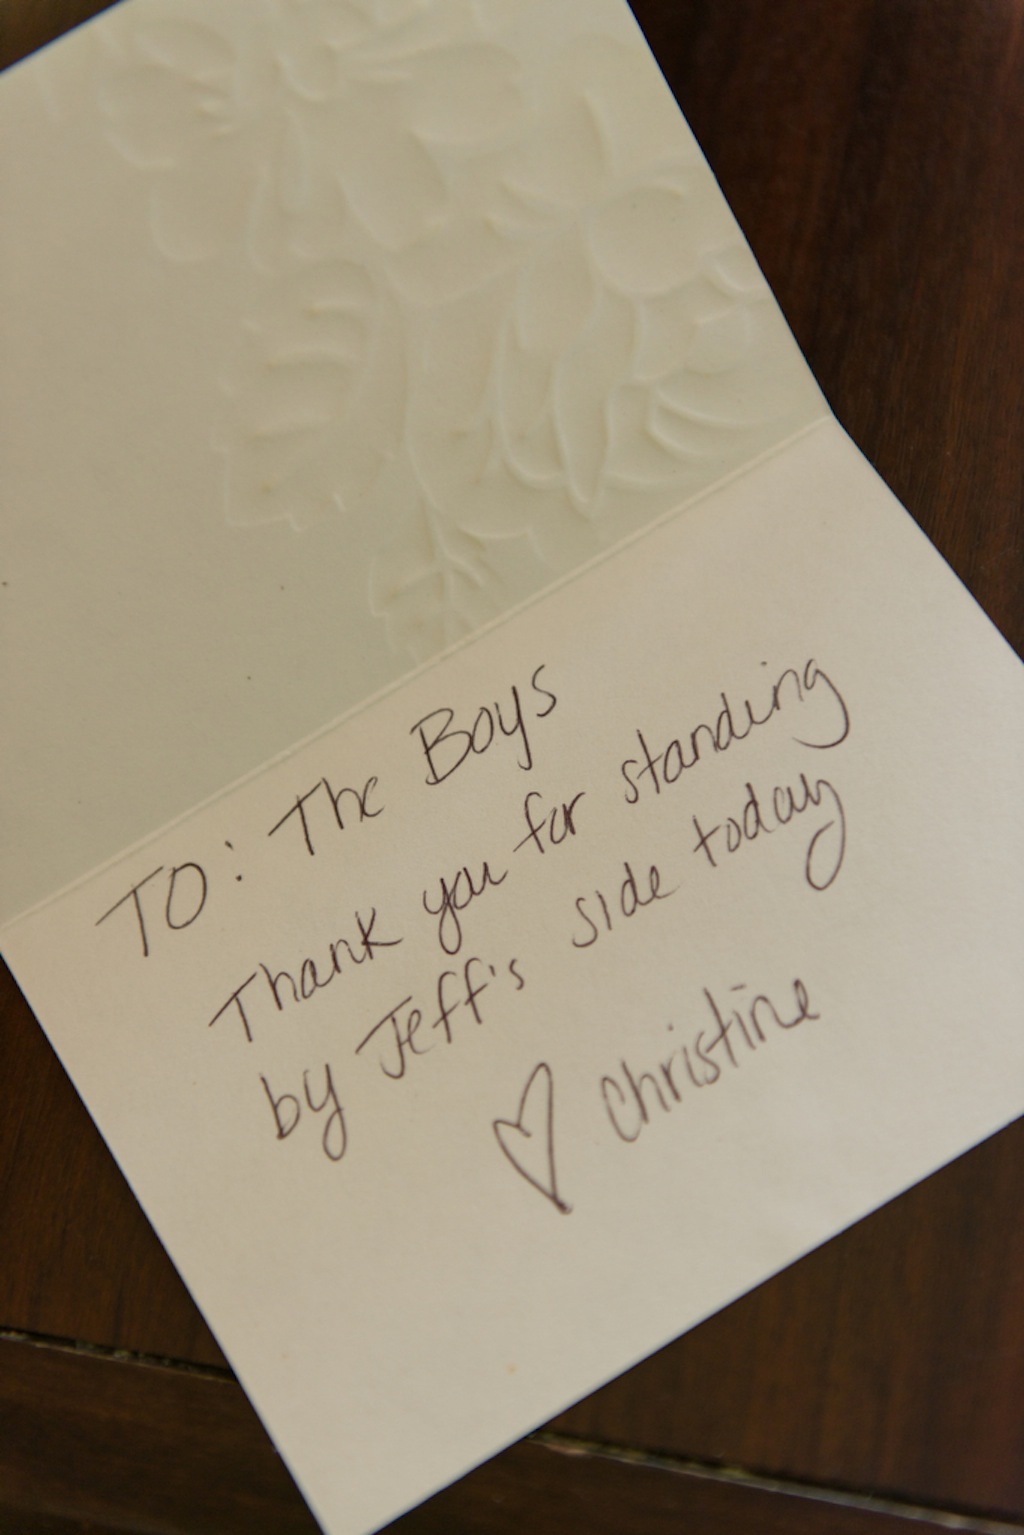 TO: The Boys
Thank you for standing
by Jeff's side today
♡ Christine